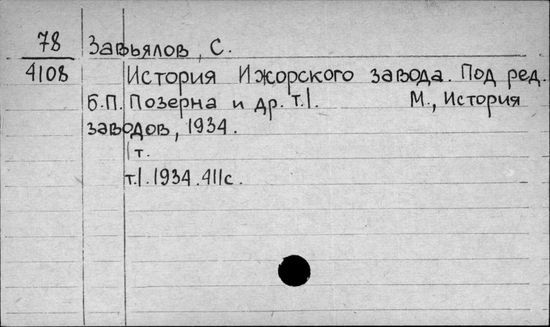 78 Завьялов, С.
4108 История Ижорского завода. Под ред.
Б.П. Позерна и др. т.1. М., История
заводов, 1934.
1 т.
т.1. 1934. 411с.